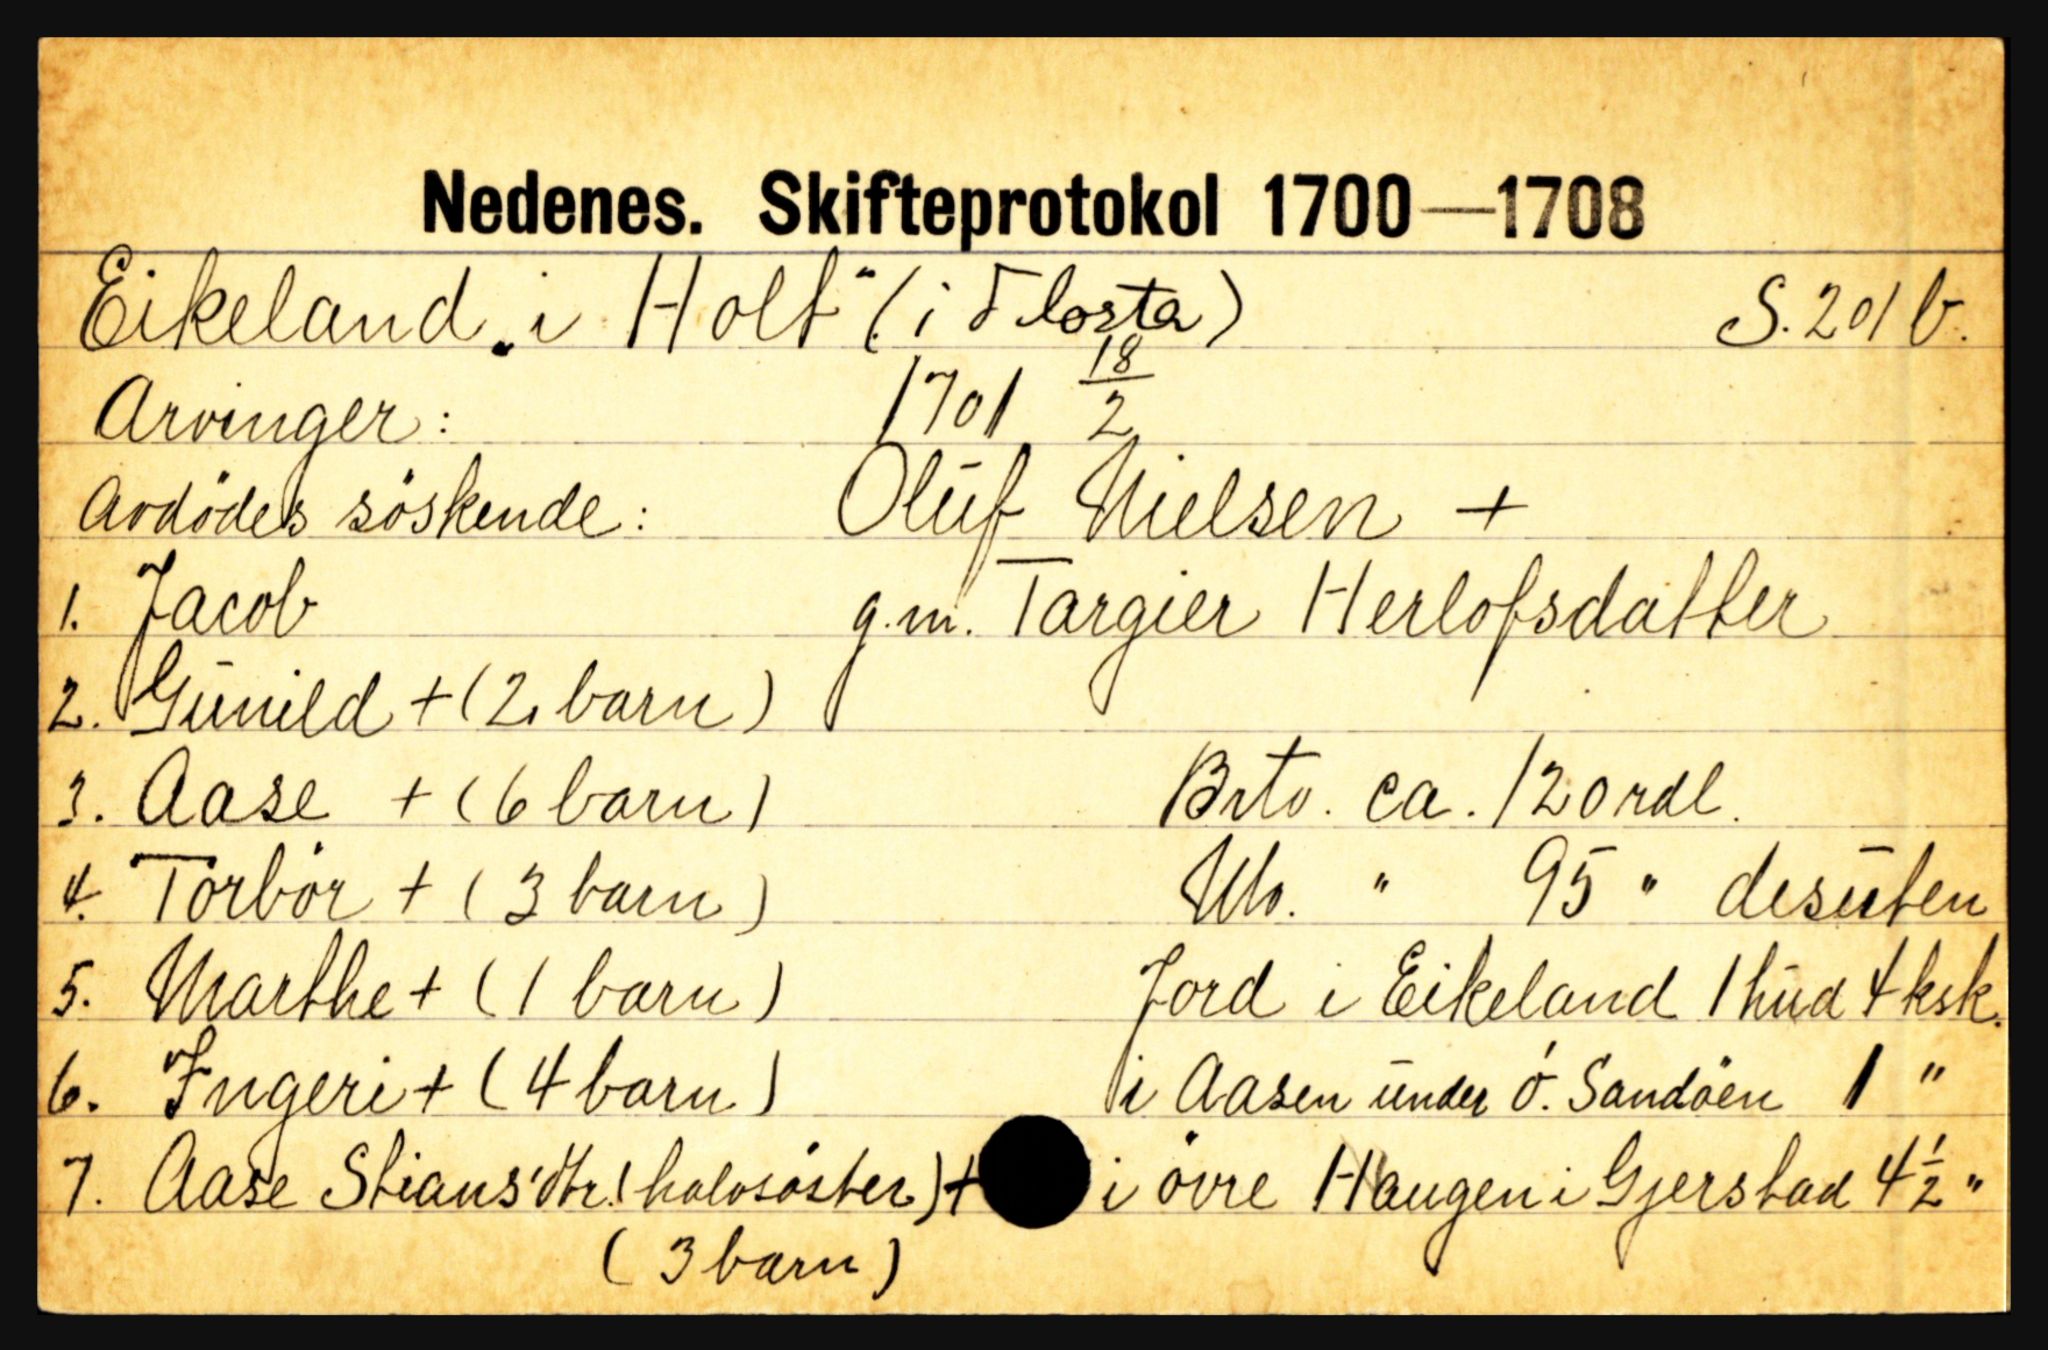 Nedenes. Skifteprotokol 1700—1708
Eikeland „i Holt“ (i Flosta) S. 201 b.
Arvinger: 1701 18/2
Avdödes söskende: Oluf Nielsen +
1. Jacob g.m. Targier Herlofsdatter
2. Gunild + (2 barn)
3. Aase + (6 barn) Brto. ca. 120 rdl.
4. Torbör + (3 barn) Nto. " 95 " desuten
5. Marthe + (1 barn) Jord i Eikeland 1 hud 4 ksk.
6. Ingeri + (4 barn) i Aasen under ö. Sandöen 1 "
7. Aase Stians'dtr. (halvsöster) + i övre Haugen i Gjerstad 4 1/2 "
(3 barn)